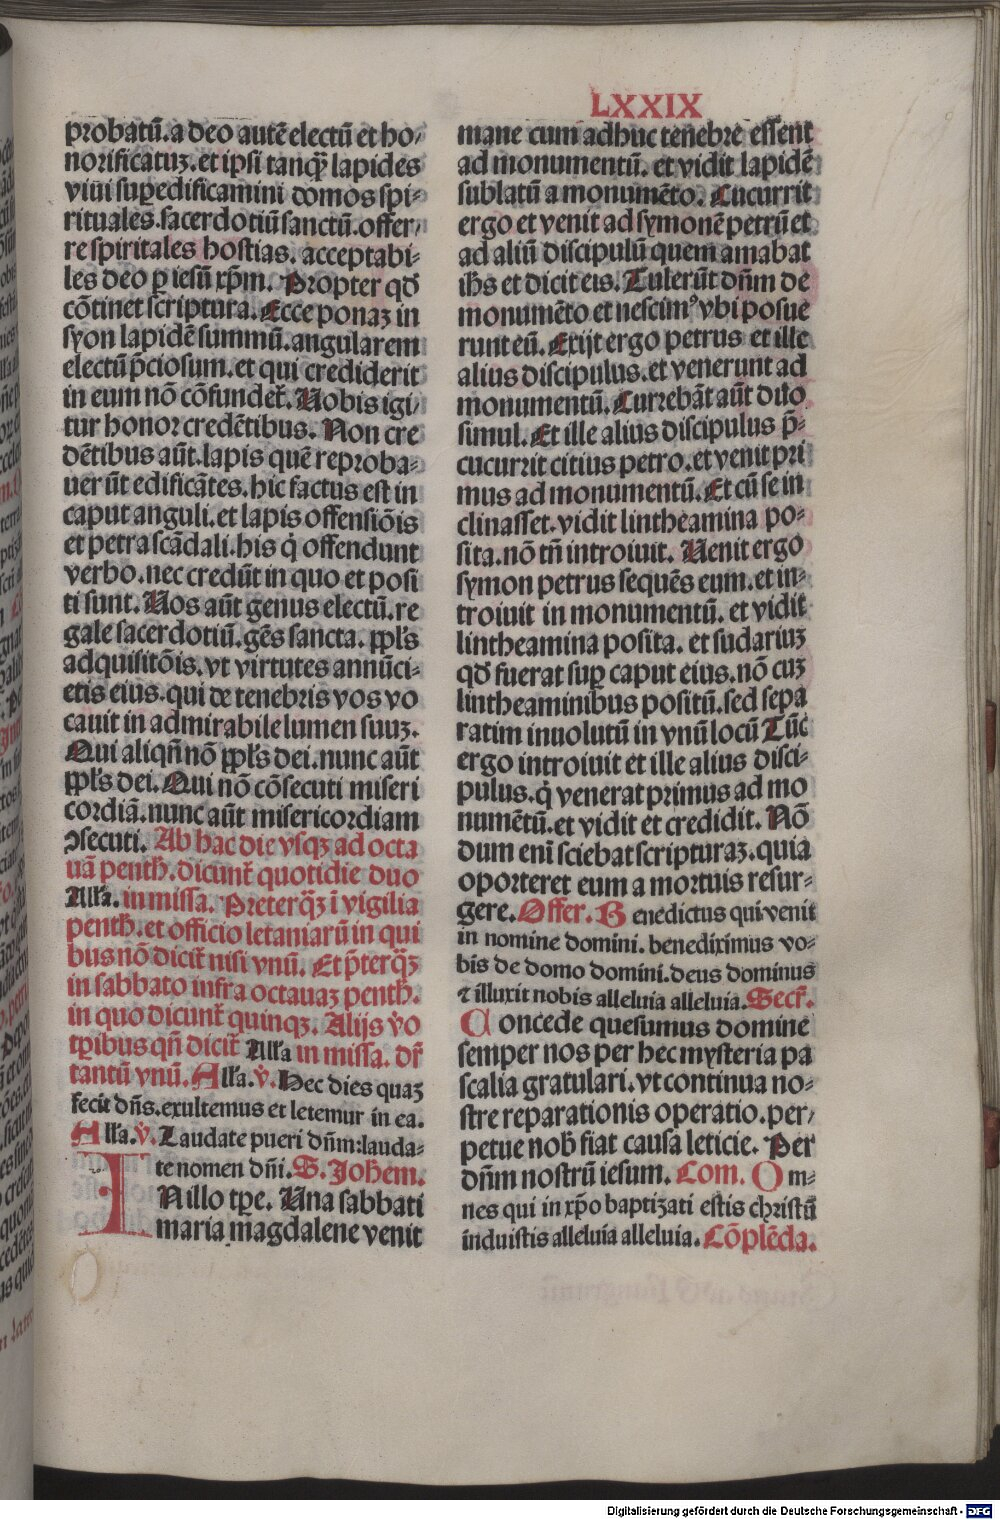 LXXIX
probatū. a deo autē electū et ho⸗
norificatuꝫ. et ipsi tanqꝫ lapides
viui suꝑedificamini domos spi⸗
rituales. sacerdotiū sanctū. offer⸗
re spiritales hostias. acceptabi⸗
les deo ꝑ iesū xp̄m. Propter qđ
cōtinet scriptura. Ecce ponaꝫ in
syon lapidē summū. angularem
electū p̄ciosum. et qui crediderit
in eum nō cōfundeť. Uobis igi⸗
tur honor credētibus. Non cre
dētibus aūt. lapis quē reproba⸗
uerūt edificātes. hic factus est in
caput anguli. et lapis offensiōis
et petra scādali. his q̇ offendunt
verbo. nec credūt in quo et posi
ti sunt. Uos aūt genus electū. re
gale sacerdotiū. gēs sancta. ppl's
adquisitōis. vt virtutes annūci⸗
etis eius. qui de tenebris vos vo
cauit in admirabile lumen suuꝫ.
Qui aliqn̄ nō ppl's dei. nunc aūt
ppl's dei. Qui nō cōsecuti miseri
cordiā. nunc aūt misericordiam
ↄsecuti. Ab hac die vsqꝫ ad octa
uā penth. dicunť quotidie duo
Alľa. in missa. Preterqꝫ ī vigilia
penth. et officio letaniarū in qui
bus nō diciť nisi vnū. Et p̄terqꝫ
in sabbato infra octauaꝫ penth.
in quo dicunť quinqꝫ. Alijs v̇o
tꝑibus qn̄ diciť Alľa in missa. dř
tantū vnū. Alľa. v̇. Hec dies quaꝫ
fecit dn̄s. exultemus et letemur in ea.
Alľa. v̇. Laudate pueri dn̄m: lauda⸗
te nomen dn̄i. S. Johem.
IN illo tꝑe. Una sabbati
maria magdalene venit
mane cum adhuc tenebre essent
ad monumentū. et vidit lapidē
sublatū a monumēto. Cucurrit
ergo et venit ad symonē petrū et
ad aliū discipulū quem amabat
ihs et dicit eis. Tulerūt dn̄m de
monumēto et nescimꝰ vbi posue
runt eū. Exijt ergo petrus et ille
alius discipulus. et venerunt ad
monumentū. Currebāt aūt duo
simul. Et ille alius discipulus p̄⸗
cucurrit citius petro. et venit pri
mus ad monumentū. Et cū se in
clinasset. vidit lintheamina po⸗
sita. nō tn̄ introiuit. Uenit ergo
symon petrus sequēs eum. et in⸗
troiuit in monumentū. et vidit
lintheamina posita. et sudariuꝫ
qđ fuerat suꝑ caput eius. nō cuꝫ
lintheaminibus positū. sed sepa
ratim inuolutū in vnū locū Tūc
ergo introiuit et ille alius disci⸗
pulus. q̇ venerat primus ad mo
numētū. et vidit et credidit. Nō
dum eni sciebat scripturaꝫ. quia
oporteret eum a mortuis resur⸗
gere. Offer. Benedictus qui venit
in nomine domini. benediximus vo⸗
bis de domo domini. deus dominus
⁊ illuxit nobis alleluia alleluia. Secř.
Concede quesumus domine
semper nos per hec mysteria pa
scalia gratulari. vt continua no⸗
stre reparationis operatio. per⸗
petue nob̄ fiat causa leticie. Per
dn̄m nostrū iesum. Com. Om⸗
nes qui in xp̄o baptizati estis christū
induistis alleluia alleluia. Cōplēda.
Digitalisierung gefördert durch die Deutsche Forschungsgemeinschaft - DFG